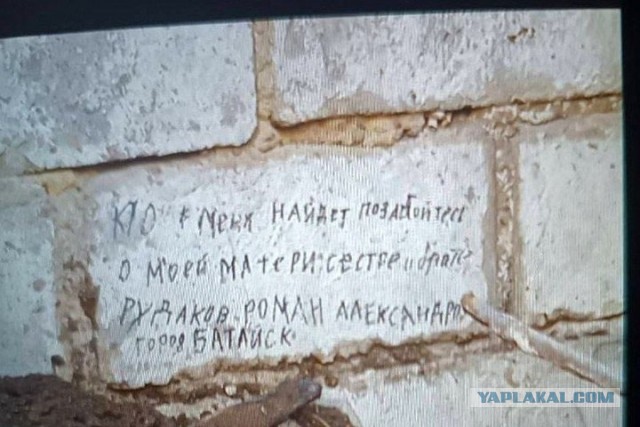 КТО меня НАЙДЕТ ПОЗАБОЙТЕСЬ
О МОЕЙ МАТЕРИ СЕСТРЕ и брате
РУДАКОВ РОМАН АЛЕКСАНДРО
город БАТАЙСК
YAPLAKAL.COM